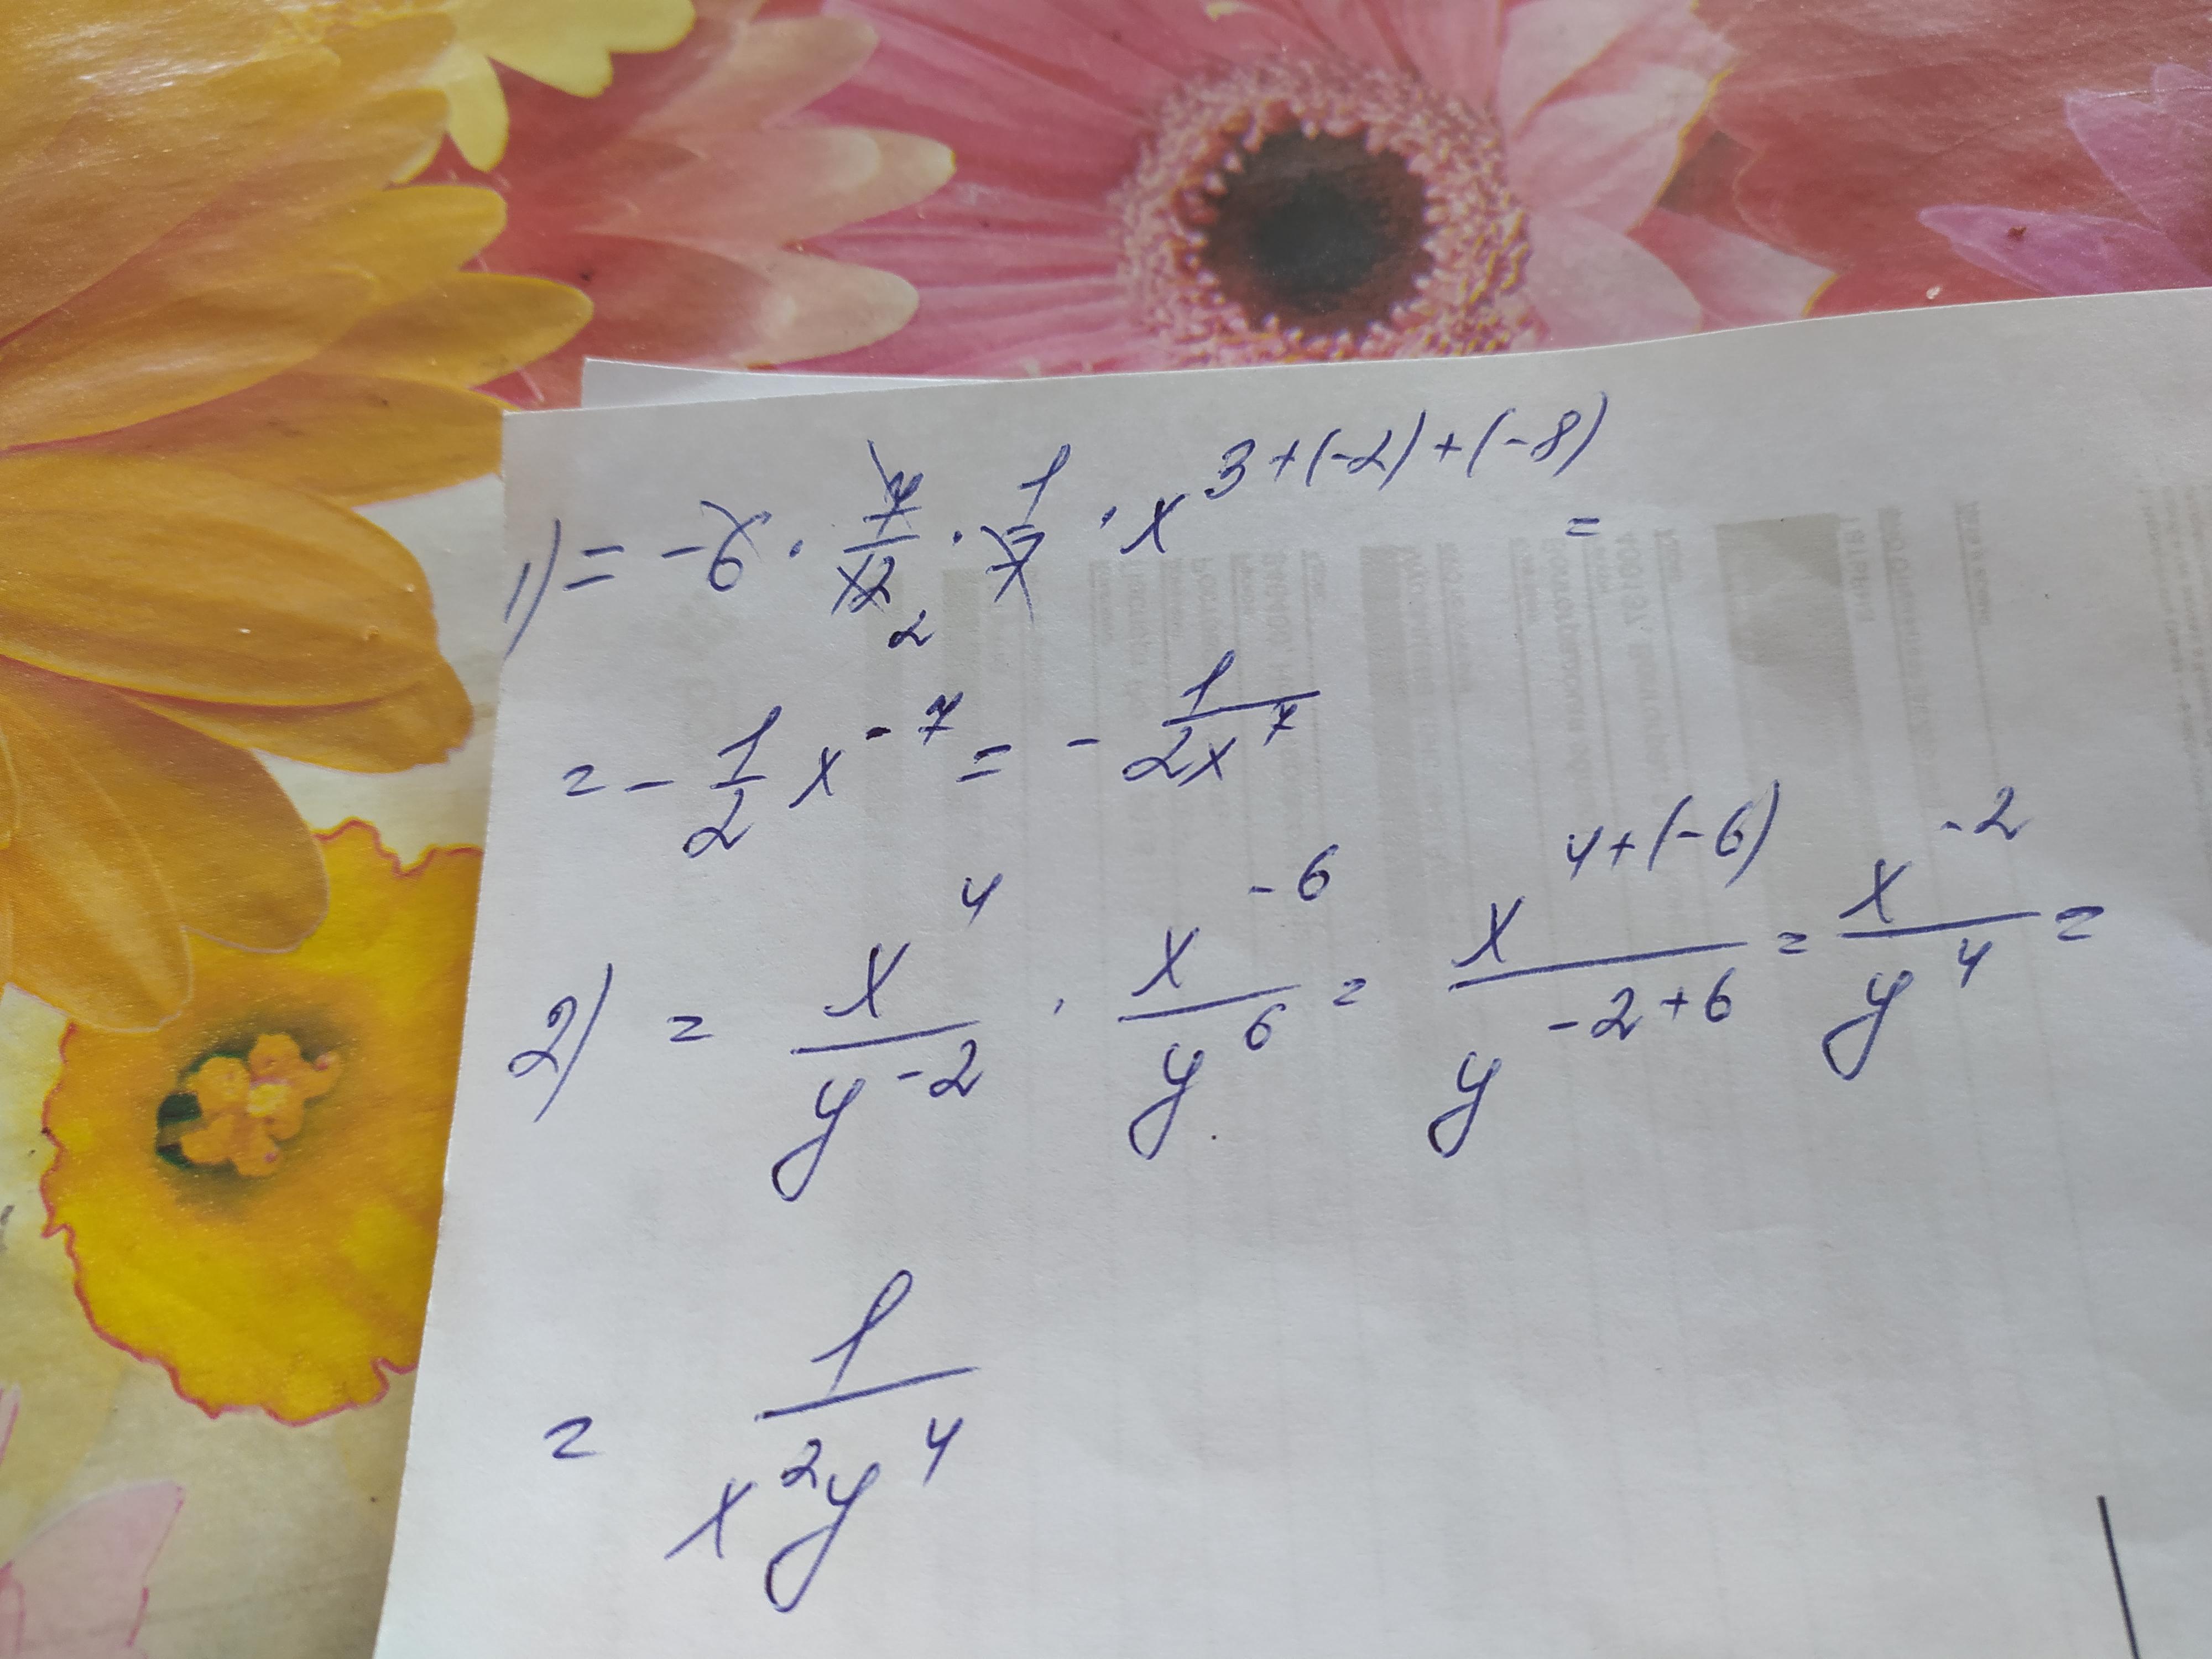 1) = -6 · 7/12 · 1/7 · x^(3+(-2)+(-8)) =
2
= - 1/2 x^(-7) = - 1/(2x^7)
2) = x^4/y^(-2) · x^(-6)/y^6 = x^(4+(-6))/y^(-2+6) = x^(-2)/y^4 =
= 1/(x^2y^4)